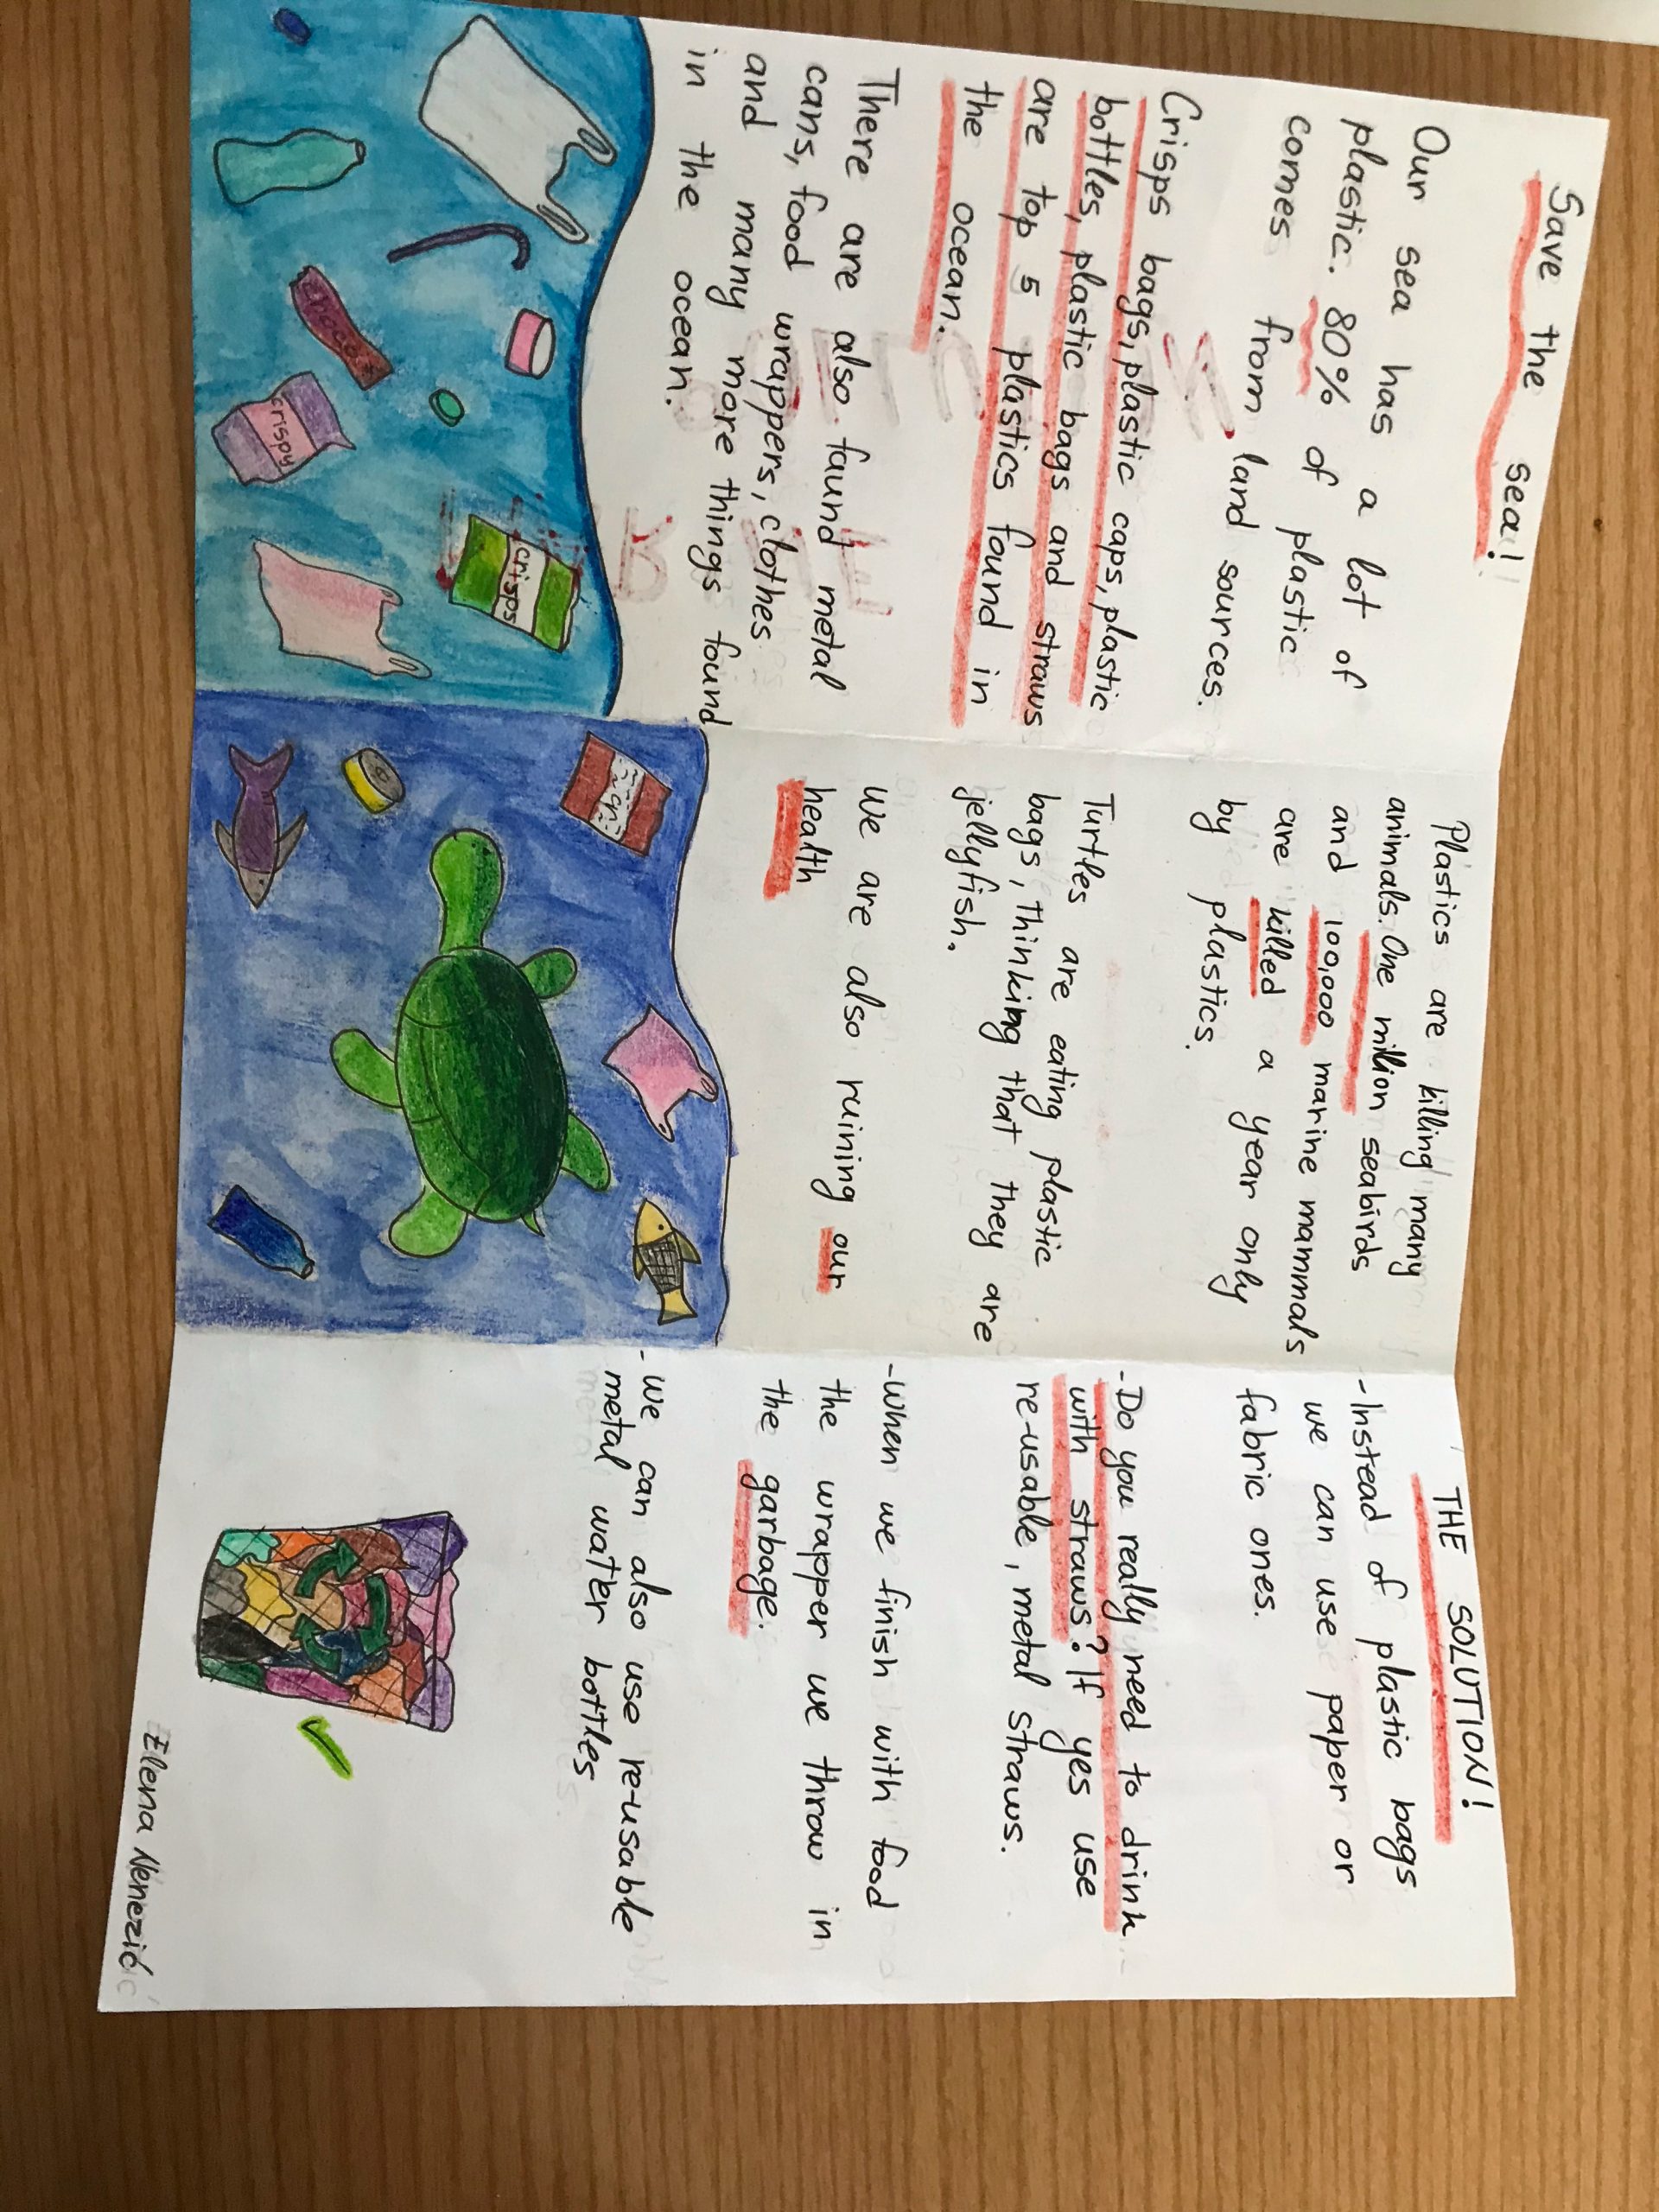 Save the sea!
Our sea has a lot of
plastic. 80% of plastic
comes from land sources.
Crisps bags, plastic caps, plastic
bottles, plastic bags and straws
are top 5 plastics found in
the ocean.
There are also found metal
cans, food wrappers, clothes
and many more things found
in the ocean.
crisps
choco
crispy
Plastics are killing many
animals. One million seabirds
and 100,000 marine mammals
are killed a year only
by plastics.
Turtles are eating plastic
bags, thinking that they are
jellyfish.
We are also ruining our
health
THE SOLUTION!
-Instead of plastic bags
we can use paper or
fabric ones.
-Do you really need to drink
with straws? If yes use
re-usable, metal straws.
-When we finish with food
the wrapper we throw in
the garbage.
-We can also use re-usable
metal water bottles
Elena Nenezić